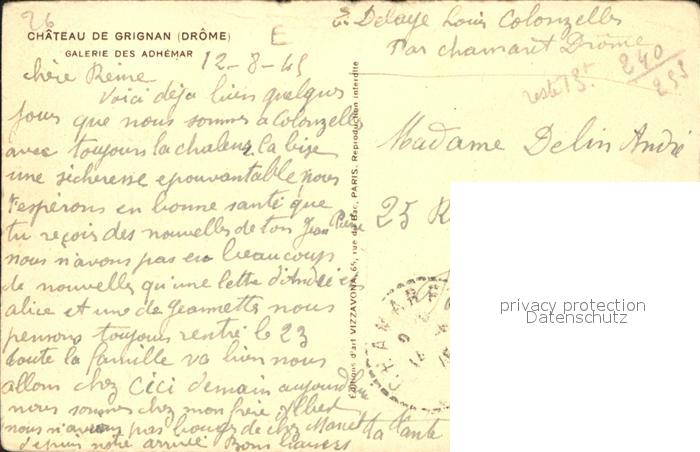 26
CHÂTEAU DE GRIGNAN (DRÔME)
GALERIE DES ADHÉMAR
E
12-8-45
chère Reine
Voici déja bien quelques
jours que nous sommes a Colonzelle
avec toujours la chaleur la bise
une sécheresse epouvantable nous
t'espérons en bonne santé que
tu reçois des nouvelles de ton Jean Pierre
nous n'avons pas eu beaucoup
de nouvelles qu'une lettre d'André
alice et une de Jeannette nous
pensons toujours rentré le 23
toute la famille va bien nous
allons chez Cici demain aujourdhui
nous sommes chez mon frère Albert
nous n'avons pas bougé de chez Marcel
depuis notre arrivée Bons baisers
ta tante
Editions d'art VIZZAVONA, 65, rue du Bac, PARIS. Reproduction interdite
E. Delaye Louis Colonzelles
Par chamaret Drôme
reste 13.
240
255
Madame Delin André
25 R
CHAMARET
privacy protection
Datenschutz